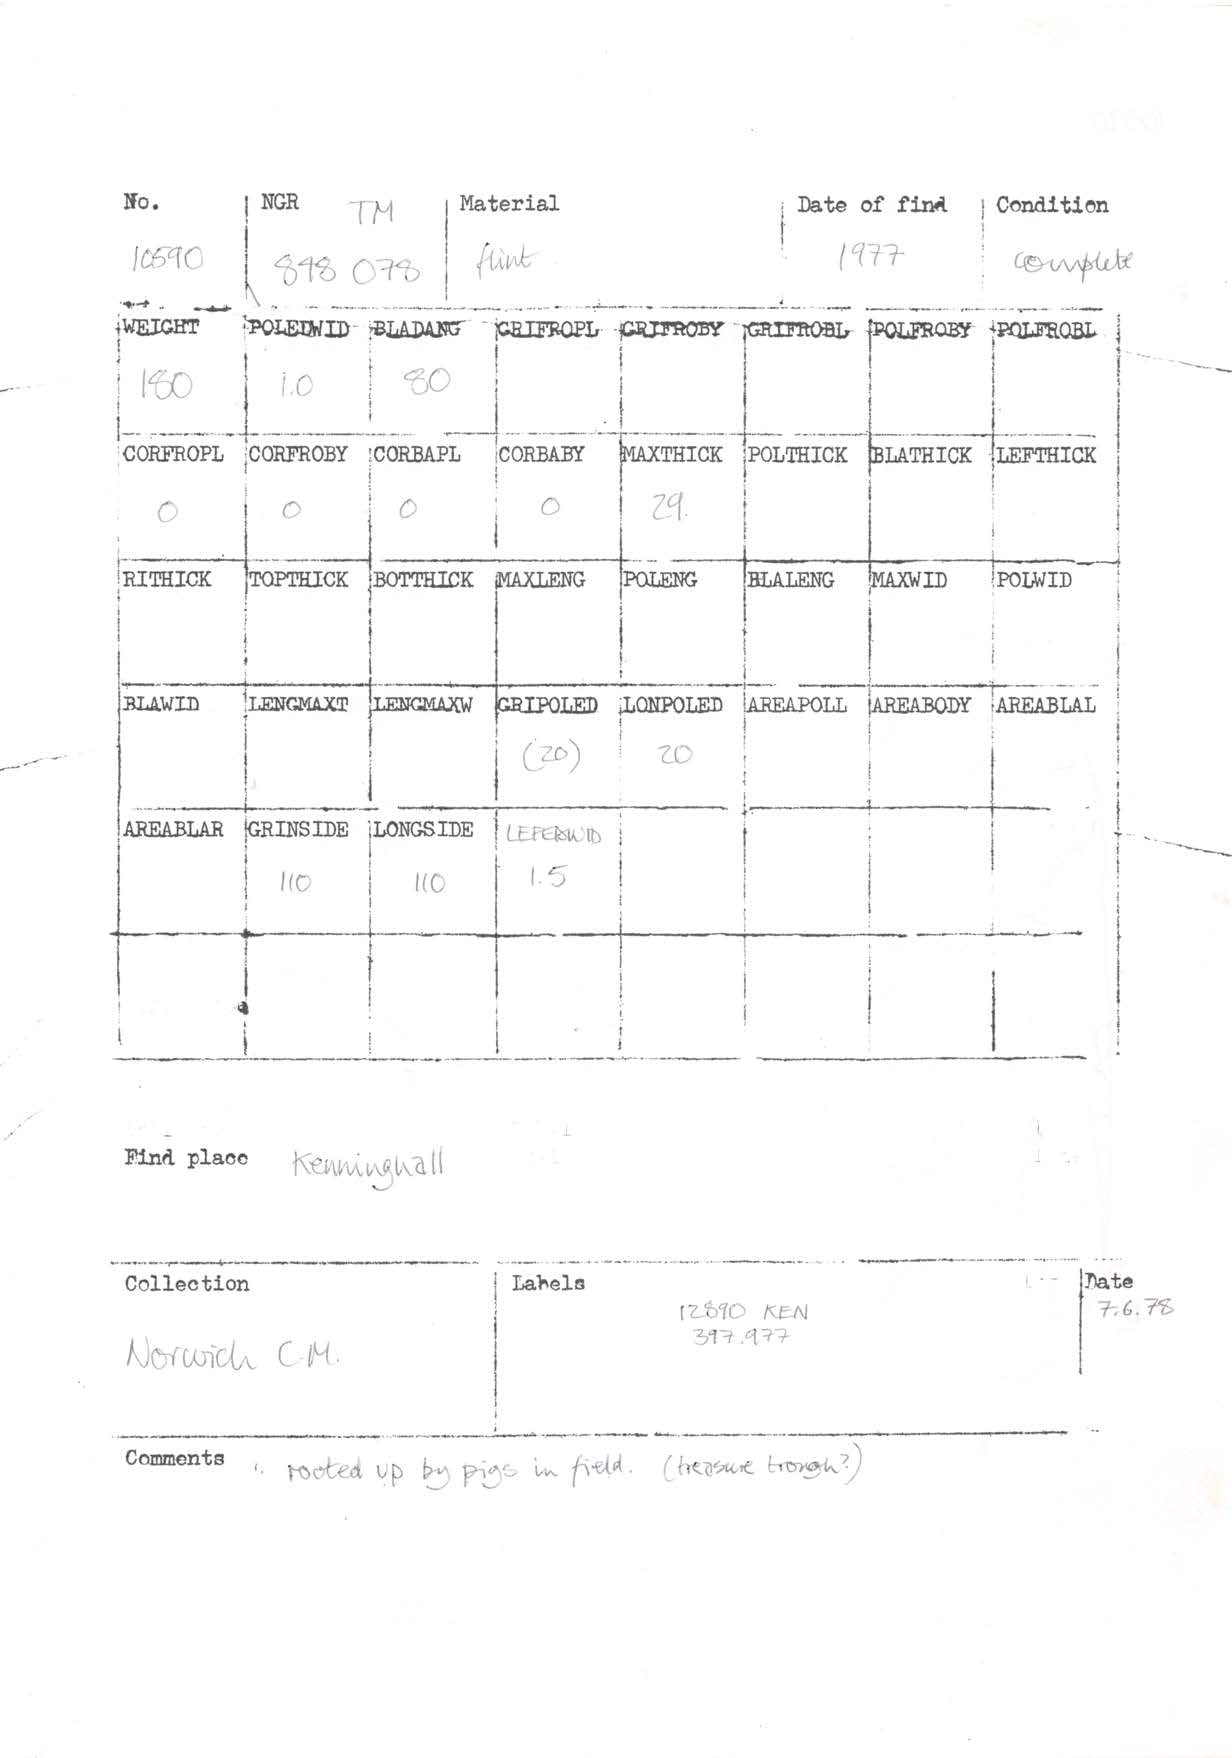 No. NGR TM Material Date of find Condition
10590 848 078 flint 1977 complete
WEIGHT POLEDWID BLADANG GRIFROPL GRIFROBY GRIFROBL POLFROBY POLFROBL
180 1.0 80
CORFROPL CORFROBY CORBAPL CORBABY MAXTHICK POLTHICK BLATHICK LEFTHICK
0 0 0 0 29.
RITHICK TOPTHICK BOTTHICK MAXLENG POLENG BLALENG MAXWID POLWID
BLAWID LENGMAXT LENGMAXW GRIPOLED LONPOLED AREAPOLL AREABODY AREABLAL
(20) 20
AREABLAR GRINSIDE LONGSIDE LEFEDWID
110 110 1.5
Find place Kenninghall
Collection Labels Date
12890 KEN 7.6.78
397.977
Norwich C.M.
Comments rooted up by pigs in field. (treasure trough?)